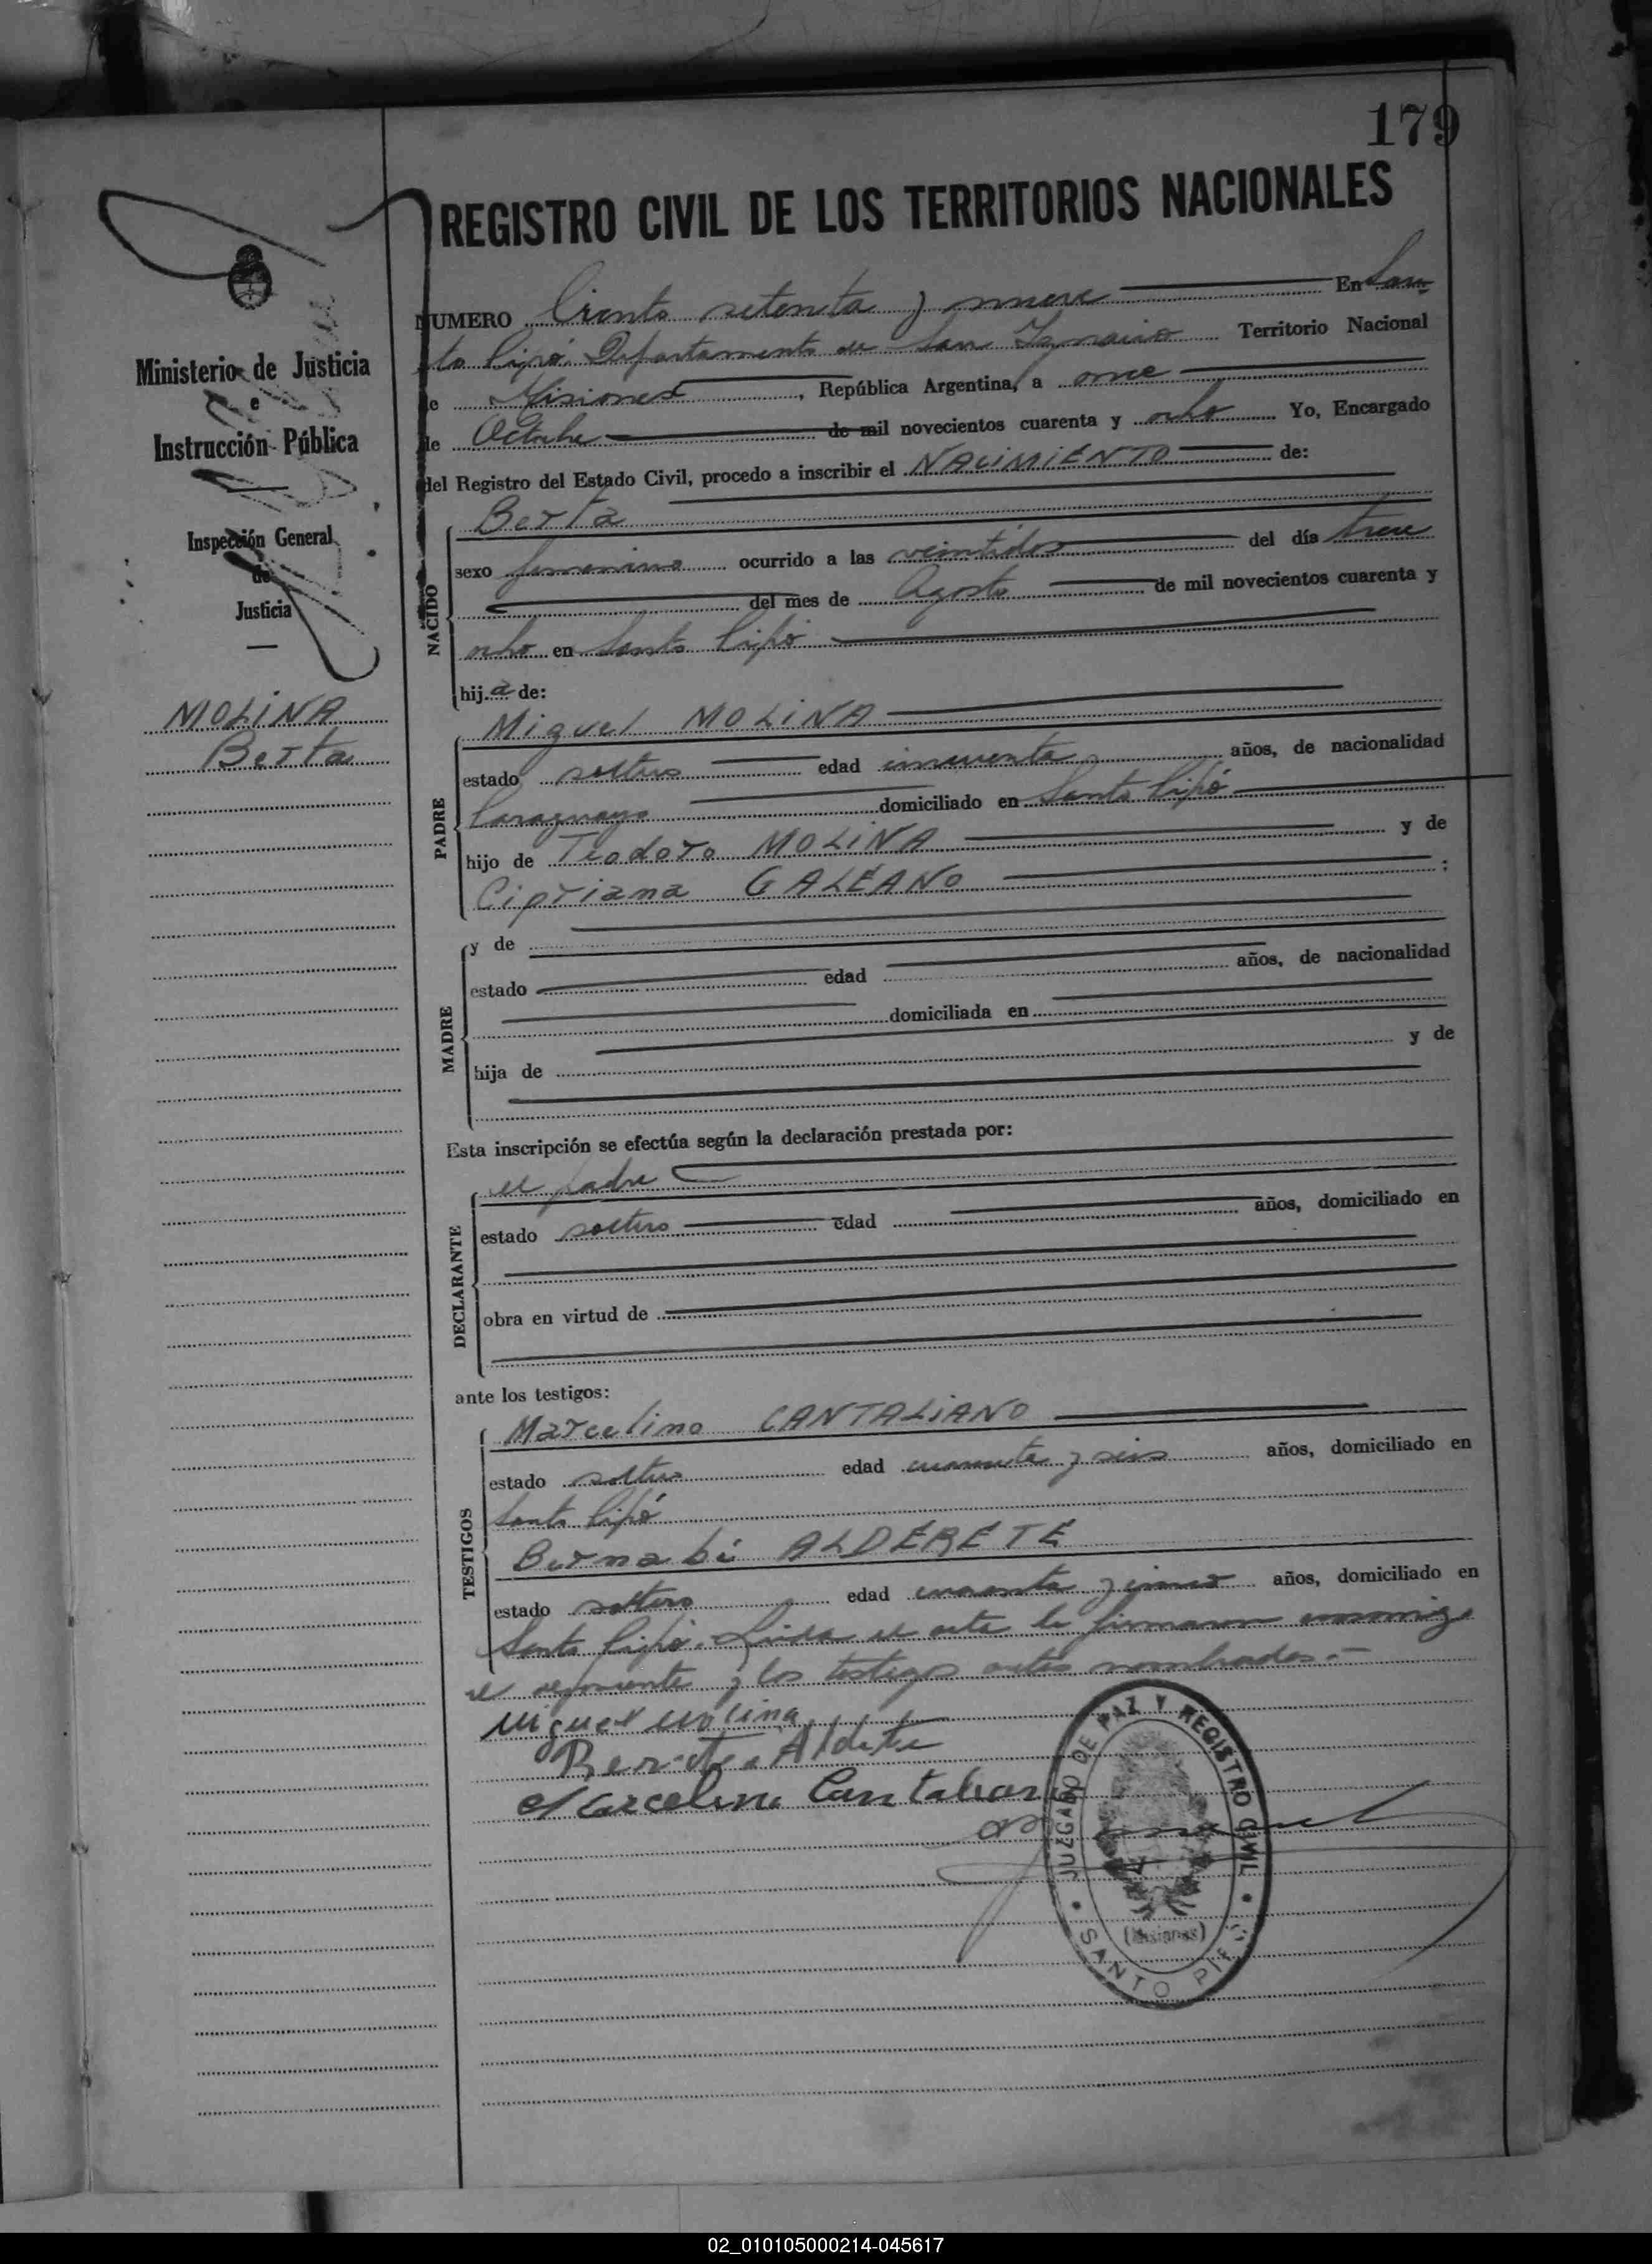 179
REGISTRO CIVIL DE LOS TERRITORIOS NACIONALES
Ministerio de Justicia
e
Instrucción Pública
Inspección General
de
Justicia
MOLINA
Berta
NUMERO Ciento setenta y nueve En San-
to Pipó Departamento de San Ignacio Territorio Nacional
de Misiones, República Argentina, a once
de Octubre de mil novecientos cuarenta y ocho Yo, Encargado
del Registro del Estado Civil, procedo a inscribir el NACIMIENTO de:
NACIDO
Berta
sexo femenino ocurrido a las veintidos del día trece
del mes de Agosto de mil novecientos cuarenta y
ocho en Santo Pipó
hija de:
PADRE
Miguel MOLINA
estado soltero edad cincuenta años, de nacionalidad
Paraguayo domiciliado en Santo Pipó
hijo de Teodoro MOLINA y de
Cipriana GALEANO ;
MADRE
y de
estado edad años, de nacionalidad
domiciliada en
hija de y de
Esta inscripción se efectúa según la declaración prestada por:
DECLARANTE
el padre
estado soltero edad años, domiciliado en
obra en virtud de
ante los testigos:
TESTIGOS
Marcelino CANTALIANO
estado soltero edad cuarenta y seis años, domiciliado en
Santo Pipó
Bernabé ALDERETE
estado soltero edad cuarenta y cinco años, domiciliado en
Santo Pipó. Leida el acta la firmaron conmigo
el exponente y los testigos antes nombrados.-
Miguel molina
Marcelino Cantalian
JUZGADO DE PAZ Y REGISTRO CIVIL
(Misiones)
SANTO PIPÓ
02_010105000214-045617